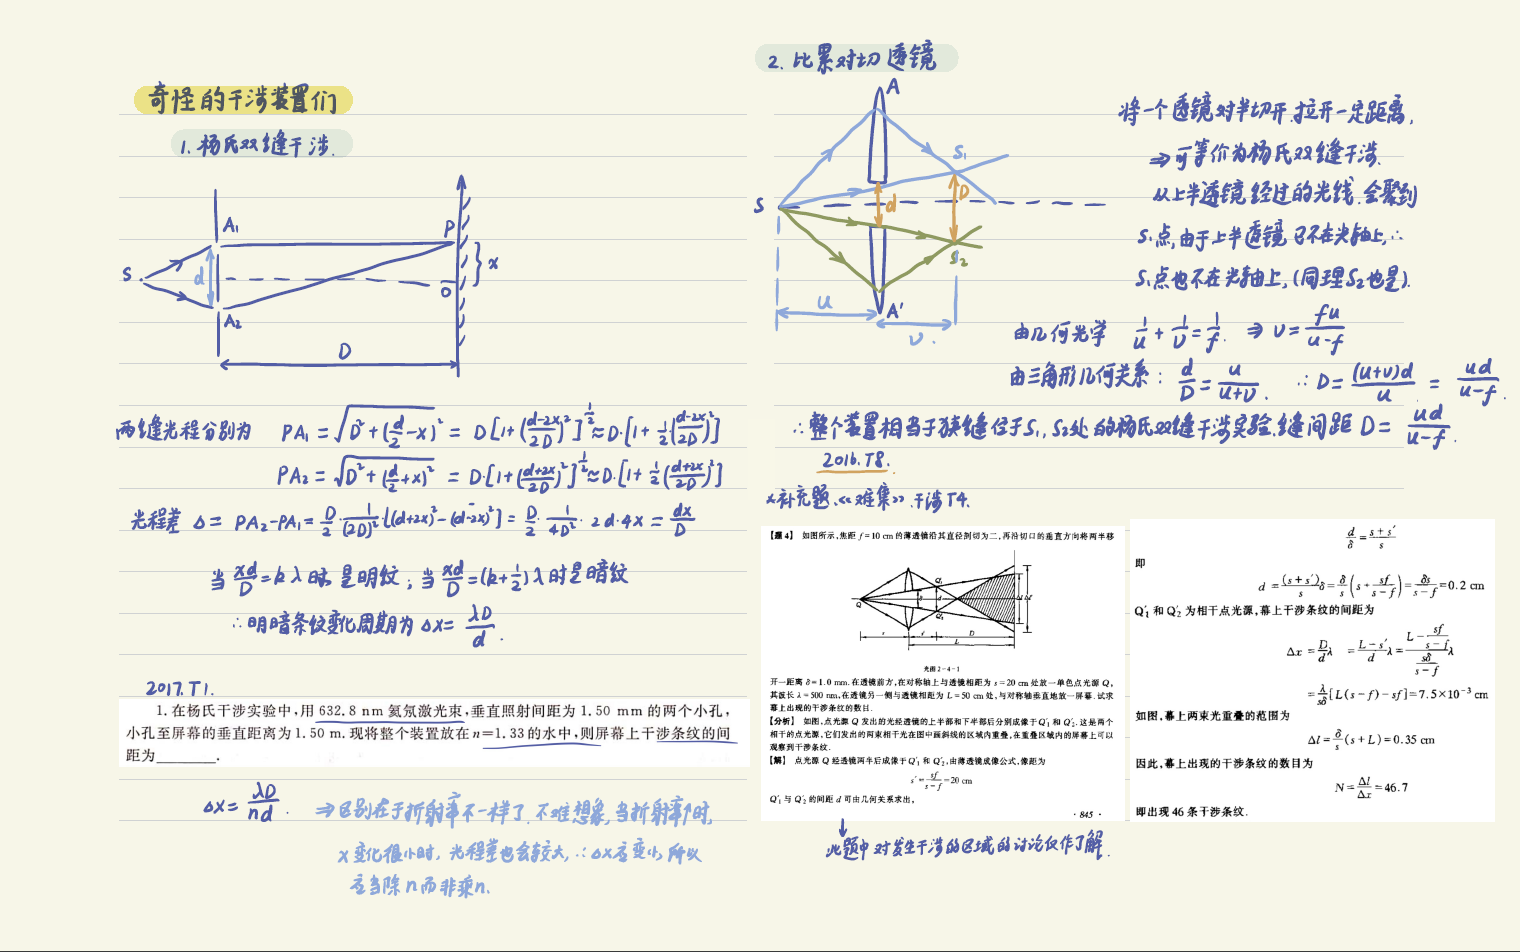 奇怪的干涉装置们
1. 杨氏双缝干涉.
A₁
P
S
d
x
O
A₂
D
两缝光程分别为 PA₁ = √(D² + (d/2 - x)²) = D[1+((d-2x)/2D)²]^(1/2) ≈ D·[1+ 1/2((d-2x)/2D)²]
PA₂ = √(D² + (d/2 + x)²) = D·[1+((d+2x)/2D)²]^(1/2) ≈ D·[1+ 1/2((d+2x)/2D)²]
光程差 Δ = PA₂-PA₁ = D/2 · 1/(2D)² · [(d+2x)² - (d-2x)²] = D/2 · 1/4D² · 2d·4x = dx/D
当 xd/D = kλ 时, 是明纹; 当 xd/D = (k+1/2)λ 时是暗纹
∴ 明暗条纹变化周期为 Δx = λD/d .
2017.T1.
1. 在杨氏干涉实验中,用 632.8 nm 氦氖激光束,垂直照射间距为 1.50 mm 的两个小孔,
小孔至屏幕的垂直距离为 1.50 m. 现将整个装置放在 n=1.33的水中,则屏幕上干涉条纹的间
距为________.
Δx = λD/nd . ⇒ 区别在于折射率不一样了. 不难想象, 当折射率↑时,
x 变化很小时, 光程差也会较大, ∴ Δx 应变小, 所以
应当除 n 而非乘 n.
2. 比累对切透镜
A
S₁
S
d
D
S₂
u
A'
v .
将一个透镜对半切开.拉开一定距离,
⇒ 可等价为杨氏双缝干涉.
从上半透镜经过的光线, 会聚到
S₁点,由于上半透镜已不在光轴上,∴
S₁点也不在光轴上,(同理S₂也是).
由几何光学 1/u + 1/v = 1/f. ⇒ v = fu/(u-f)
由三角形几何关系: d/D = u/(u+v). ∴ D = (u+v)d/u = ud/(u-f).
∴ 整个装置相当于狭缝位于S₁, S₂处的杨氏双缝干涉实验.缝间距 D = ud/(u-f).
2016.T8.
×补充题.《难集》.干涉T4.
【题 4】 如图所示,焦距 f=10 cm 的薄透镜沿其直径剖切为二,再沿切口的垂直方向将两半移
光图 2-4-1
开一距离 δ=1.0 mm. 在透镜前方,在对称轴上与透镜相距为 s=20 cm 处放一单色点光源 Q,
其波长 λ=500 nm,在透镜另一侧与透镜相距为 L=50 cm 处,与对称轴垂直地放一屏幕.试求
幕上出现的干涉条纹的数目.
【分析】 如图,点光源 Q 发出的光经透镜的上半部和下半部后分别成像于 Q'₁ 和 Q'₂. 这是两个
相干的点光源,它们发出的两束相干光在图中画斜线的区域内重叠,在重叠区域内的屏幕上可以
观察到干涉条纹.
【解】 点光源 Q 经透镜两半后成像于 Q'₁ 和 Q'₂,由薄透镜成像公式,像距为
s' = sf/(s-f) = 20 cm
Q'₁ 与 Q'₂ 的间距 d 可由几何关系求出,
· 845 ·
d/δ = (s+s')/s
即
d = (s+s')/s δ = δ/s (s + sf/(s-f)) = δs/(s-f) = 0.2 cm
Q'₁ 和 Q'₂ 为相干点光源,幕上干涉条纹的间距为
Δx = D/d λ = (L-s')/d λ = (L - sf/(s-f))/(sδ/(s-f)) λ
= λ/sδ [L(s-f)-sf] = 7.5×10⁻³ cm
如图,幕上两束光重叠的范围为
Δl = δ/s (s+L) = 0.35 cm
因此,幕上出现的干涉条纹的数目为
N = Δl/Δx = 46.7
即出现 46 条干涉条纹.
此题中对发生干涉的区域的讨论仅作了解.